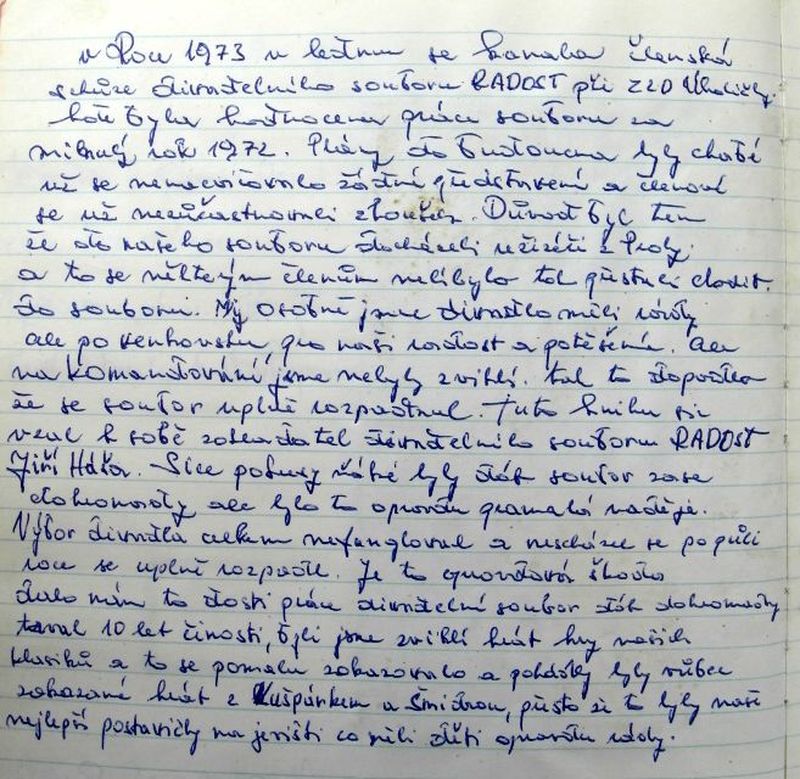 v Roce 1973 v lednu se konala členská
schůze divadelního souboru RADOST při ZZD Úholičky.
kde byla hodnocena práce souboru za
minulý rok 1972. Plány do budoucna byly chabé
už se nenacvičovalo žádné představení a členové
se už nezúčastnovali zkoušek. Důvod byl ten
že do našeho souboru docházeli režiséři z Prahy.
a to se některým členům nelíbylo tak přestali chodit.
do souboru. My osobně jsme divadlo měli rády
ale po venkovsku, pro naši radost a potěšení. Ale
na komandování, jsme nebyly zviklí. tak to dopadlo
že se soubor uplně rozpadnul. Tuto knihu si
vzal k sobě zakladatel divadelního souboru RADOST
Jiří Háša. Sice pokusy ještě byly dát soubor zase
dohromady ale bylo to opravdu pramalá naděje.
Výbor divadla celkem nefungloval a nescháze se po půli
roce se uplně rozpadl. Je to opravdová škoda
dalo nám to dosti práce divadelní soubor dát dohromady
trval 10 let činosti, byli jsme zviklí hrát hry našich
klasiků a to se pomalu zakazovalo a pohádky byly vůbec
zakázané hrát z Kušpárkem a Šmidrou, přesto že to byly naše
nejlepší postavičky na jevišti co měli děti opravdu rády.